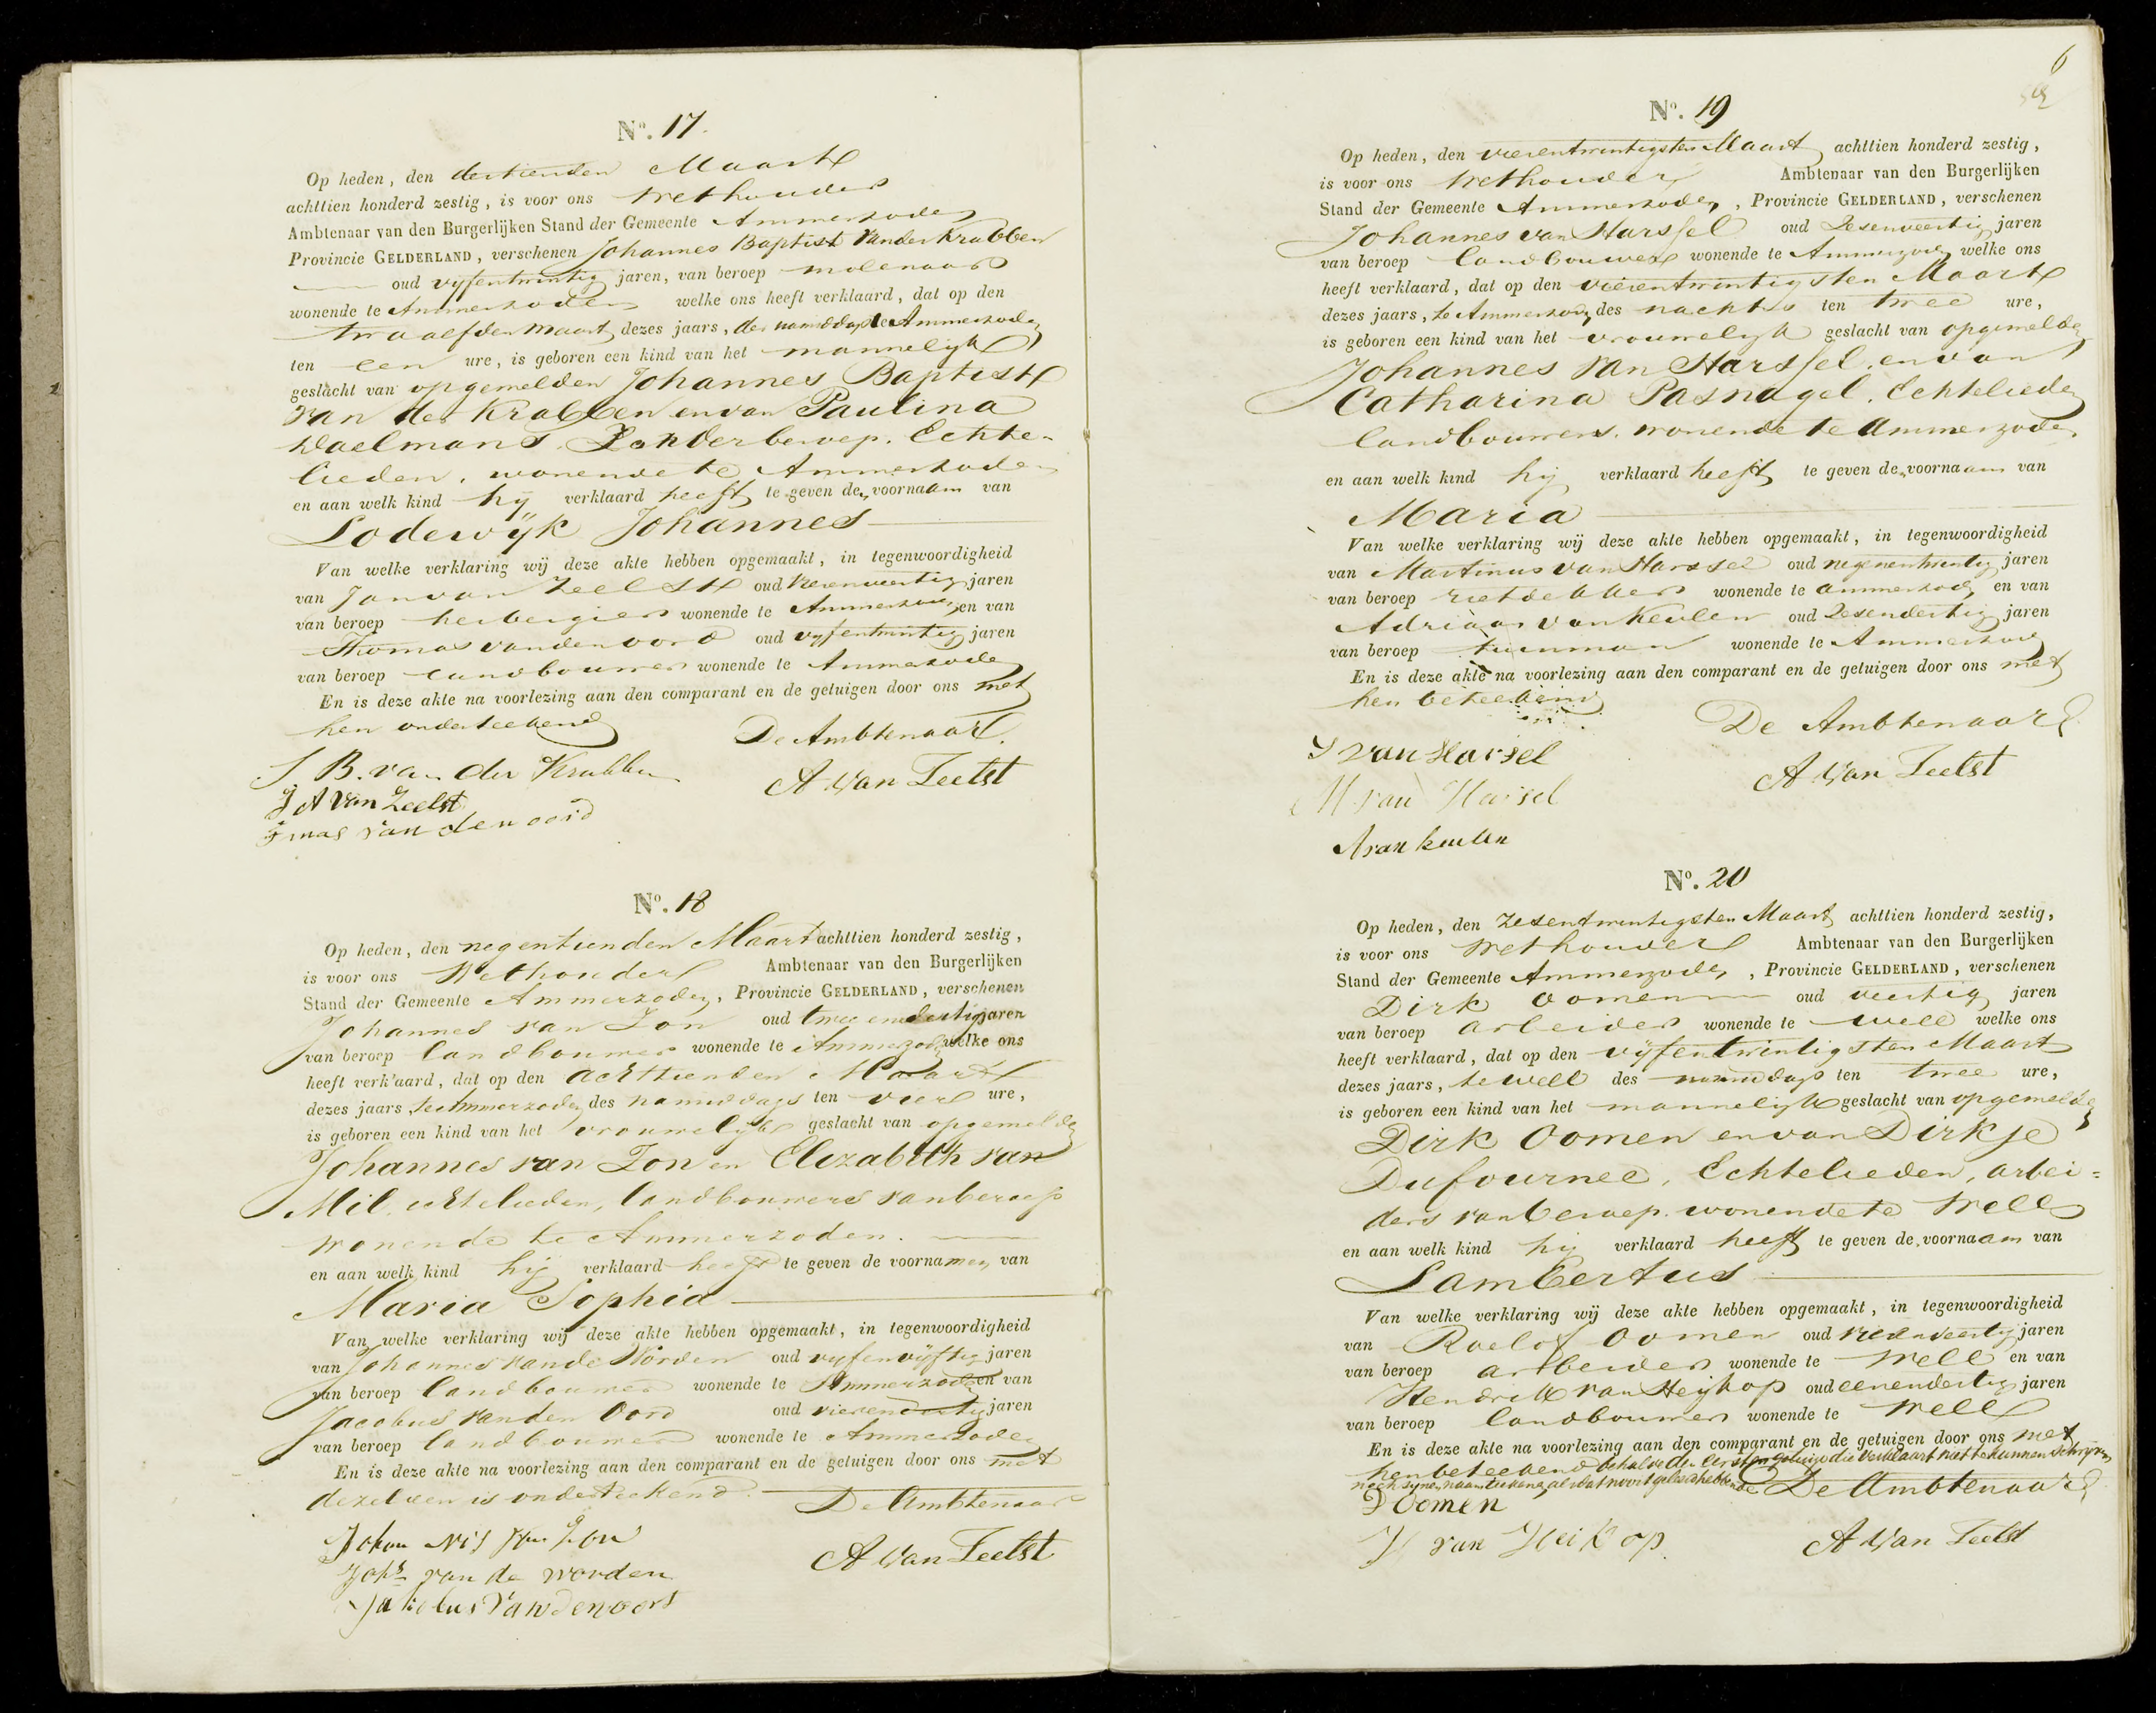 No. 17.
Op heden, den dertienden Maart
achttien honderd zestig, is voor ons Wethouder
Ambtenaar van den Burgerlijken Stand der Gemeente Ammerzoden
Provincie GELDERLAND, verschenen Johannes Baptist van der Krabben
oud vyfentwintig jaren, van beroep molenaar
wonende te Ammerzoden welke ons heeft verklaard, dat op den
twaalfden maart dezes jaars, des namiddags te Ammerzoden
ten een ure, is geboren een kind van het mannelyk
geslacht van opgemelden Johannes Baptist
van der Krabben en van Paulina
Daelmans, Zonder beroep. Echte-
lieden, wonende te Ammerzoden
en aan welk kind hij verklaard heeft te geven den voornaam van
Lodewijk Johannes
Van welke verklaring wij deze akte hebben opgemaakt, in tegenwoordigheid
van Jan van Zeelst oud vierenveertig jaren
van beroep herbergier wonende te Ammerzoden en van
Thomas van den oord oud vyfentwintig jaren
van beroep landbouwer wonende te Ammerzoden
En is deze akte na voorlezing aan den comparant en de getuigen door ons met
hen onderteekend
De Ambtenaar.
J. B. van der Krabben
A van Zeelst
J A van Zeelst
van den oord
No. 18
Op heden, den negentienden Maart achttien honderd zestig,
is voor ons Wethouder Ambtenaar van den Burgerlijken
Stand der Gemeente Ammerzoden, Provincie GELDERLAND, verschenen
Johannes van Zon oud twee en dertig jaren
van beroep landbouwer wonende te Ammerzoden welke ons
heeft verklaard, dat op den achttienden Maart
dezes jaars, te Ammerzoden des namiddags ten vier ure,
is geboren een kind van het vrouwelyk geslacht van opgemelden
Johannes van Zon en Elizabeth van
Mil, echtelieden, landbouwers van beroep
wonende te Ammerzoden.
en aan welk kind hij verklaard heeft te geven de voornamen van
Maria Sophia
Van welke verklaring wij deze akte hebben opgemaakt, in tegenwoordigheid
van Johannes van de Worden oud vyfenvyftig jaren
van beroep landbouwer wonende te Ammerzoden en van
Jacobus van den Oord oud vierendertig jaren
van beroep landbouwer wonende te Ammerzoden
En is deze akte na voorlezing aan den comparant en de getuigen door ons met
dezelven is onderteekend.
De Ambtenaar
Johannis van Zon
A van Zeelst
Johs van de worden
Jakobus van den oort
6
No. 19
Op heden, den vierentwintigsten Maart achttien honderd zestig,
is voor ons Wethouder Ambtenaar van den Burgerlijken
Stand der Gemeente Ammerzoden, Provincie GELDERLAND, verschenen
Johannes van Harssel oud Zesenveertig jaren
van beroep landbouwer wonende te Ammerzoden welke ons
heeft verklaard, dat op den vierentwintigsten Maart
dezes jaars, te Ammerzoden des nachts ten twee ure,
is geboren een kind van het vrouwelyk geslacht van opgemelden
Johannes van Harssel en van
Catharina Pasnagel. Echtelieden
landbouwers, wonende te Ammerzoden
en aan welk kind hij verklaard heeft te geven den voornaam van
Maria
Van welke verklaring wij deze akte hebben opgemaakt, in tegenwoordigheid
van Martinus van Harssel oud negenentwintig jaren
van beroep rietdekker wonende te Ammerzoden en van
Adriaan van Keulen oud Zesendertig jaren
van beroep tuinman wonende te Ammerzoden
En is deze akte na voorlezing aan den comparant en de getuigen door ons met
hen beteekend
De Ambtenaar
J van Harsel
A van Zeelst
M van Harsel
A van keulen
No. 20
Op heden, den zesentwintigsten Maart achttien honderd zestig,
is voor ons Wethouder Ambtenaar van den Burgerlijken
Stand der Gemeente Ammerzoden, Provincie GELDERLAND, verschenen
Dirk Oomen oud veertig jaren
van beroep arbeider wonende te Well welke ons
heeft verklaard, dat op den vijfentwintigsten Maart
dezes jaars, te Well des namiddags ten twee ure,
is geboren een kind van het mannelyk geslacht van opgemelden
Dirk Oomen en van Dirkje
Dufournee, Echtelieden, arbei=
ders van beroep. wonende te Well
en aan welk kind hij verklaard heeft te geven den voornaam van
Lambertus
Van welke verklaring wij deze akte hebben opgemaakt, in tegenwoordigheid
van Roelof Oomen oud vierenveertig jaren
van beroep arbeider wonende te Well en van
Hendrik van Heijkop oud eenendertig jaren
van beroep landbouwer wonende te Well
En is deze akte na voorlezing aan den comparant en de getuigen door ons met
hen beteekend behalve den Eersten getuige die verklaart niet te kunnen schrijven
noch zynen naam teekenen, als dat nooit geleerd hebbende De Ambtenaar
D oomen
H van Heikop.
A van Zeelst